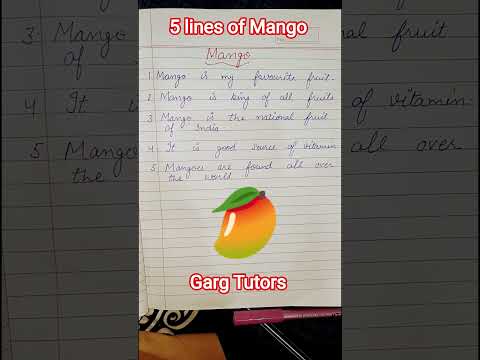 5 lines of Mango
Mango
1 Mango is my favourite fruit.
2 Mango is king of all fruits
3 Mango is the national fruit
of India
4 It is good source of vitamin
5 Mangoes are found all over
the world
Garg Tutors